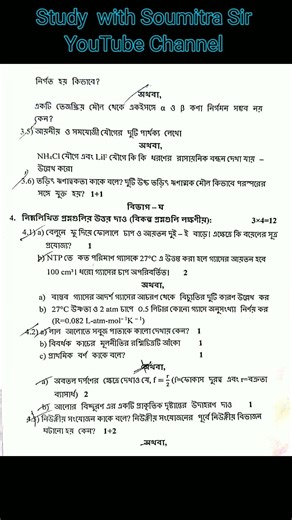 Study with Soumitra Sir
YouTube Channel
নির্গত হয় কিভাবে?
অথবা,
একটি তেজস্ক্রিয় মৌল থেকে একইসঙ্গে α ও β কণা নির্গমন সম্ভব নয়
কেন?
3.5) আয়নীয় ও সমযোজী যৌগের দুটি পার্থক্য লেখো
অথবা,
NH₄Cl যৌগে এবং LiF যৌগে কি কি ধরণের রাসায়নিক বন্ধন দেখা যায় –
উল্লেখ করো।
3.6) তড়িৎ ঋণাত্মকতা কাকে বলে? দুটি উচ্চ তড়িৎ ঋণাত্মক মৌল কিভাবে পরস্পরের
সঙ্গে যুক্ত হয়? 1+1
বিভাগ – ঘ
4. নিম্নলিখিত প্রশ্নগুলির উত্তর দাও (বিকল্প প্রশ্নগুলি লক্ষণীয়): 3×4=12
4.1) a) বেলুনে ফু দিয়ে ফোলালে চাপ ও আয়তন দুই – ই বাড়ে। এক্ষেত্রে কি বয়েলের সূত্র
প্রযোজ্য? 1
b) NTP তে কত পরিমাণ গ্যাসকে 27°C এ উত্তপ্ত করা হলে গ্যাসের আয়তন হবে
100 cm³। ধরো গ্যাসের চাপ অপরিবর্তিত। 2
অথবা,
a) বাস্তব গ্যাসের আদর্শ গ্যাসের আচরণ থেকে বিচ্যুতির দুটি কারণ উল্লেখ কর
b) 27°C উষ্ণতা ও 2 atm চাপে 0.5 লিটার কোনো গ্যাসে অনুসংখ্যা নির্ণয় কর
(R=0.082 L-atm-mol⁻¹K⁻¹)
4.2) a) লাল আলোতে সবুজ পাতাকে কালো দেখায় কেন? 1
b) বিবর্ধক কাচের মূলনীতির রশ্মিচিত্রটি আঁকো 1
c) প্রাথমিক বর্ণ কাকে বলে? 1
অথবা,
a) অবতল দর্পণের ক্ষেত্রে দেখাও যে, f = r/2 (f=ফোকাস দূরত্ব এবং r=বক্রতা
ব্যাসার্ধ) 2
b) আলোর বিচ্ছুরণ এর একটি প্রাকৃতিক দৃষ্টান্তের উদাহরণ দাও 1
4.3) নিউক্লীয় সংযোজন কাকে বলে? নিউক্লীয় সংযোজনের পূর্বে নিউক্লীয় বিভাজন
ঘটানো হয় কেন? 1+2
অথবা,